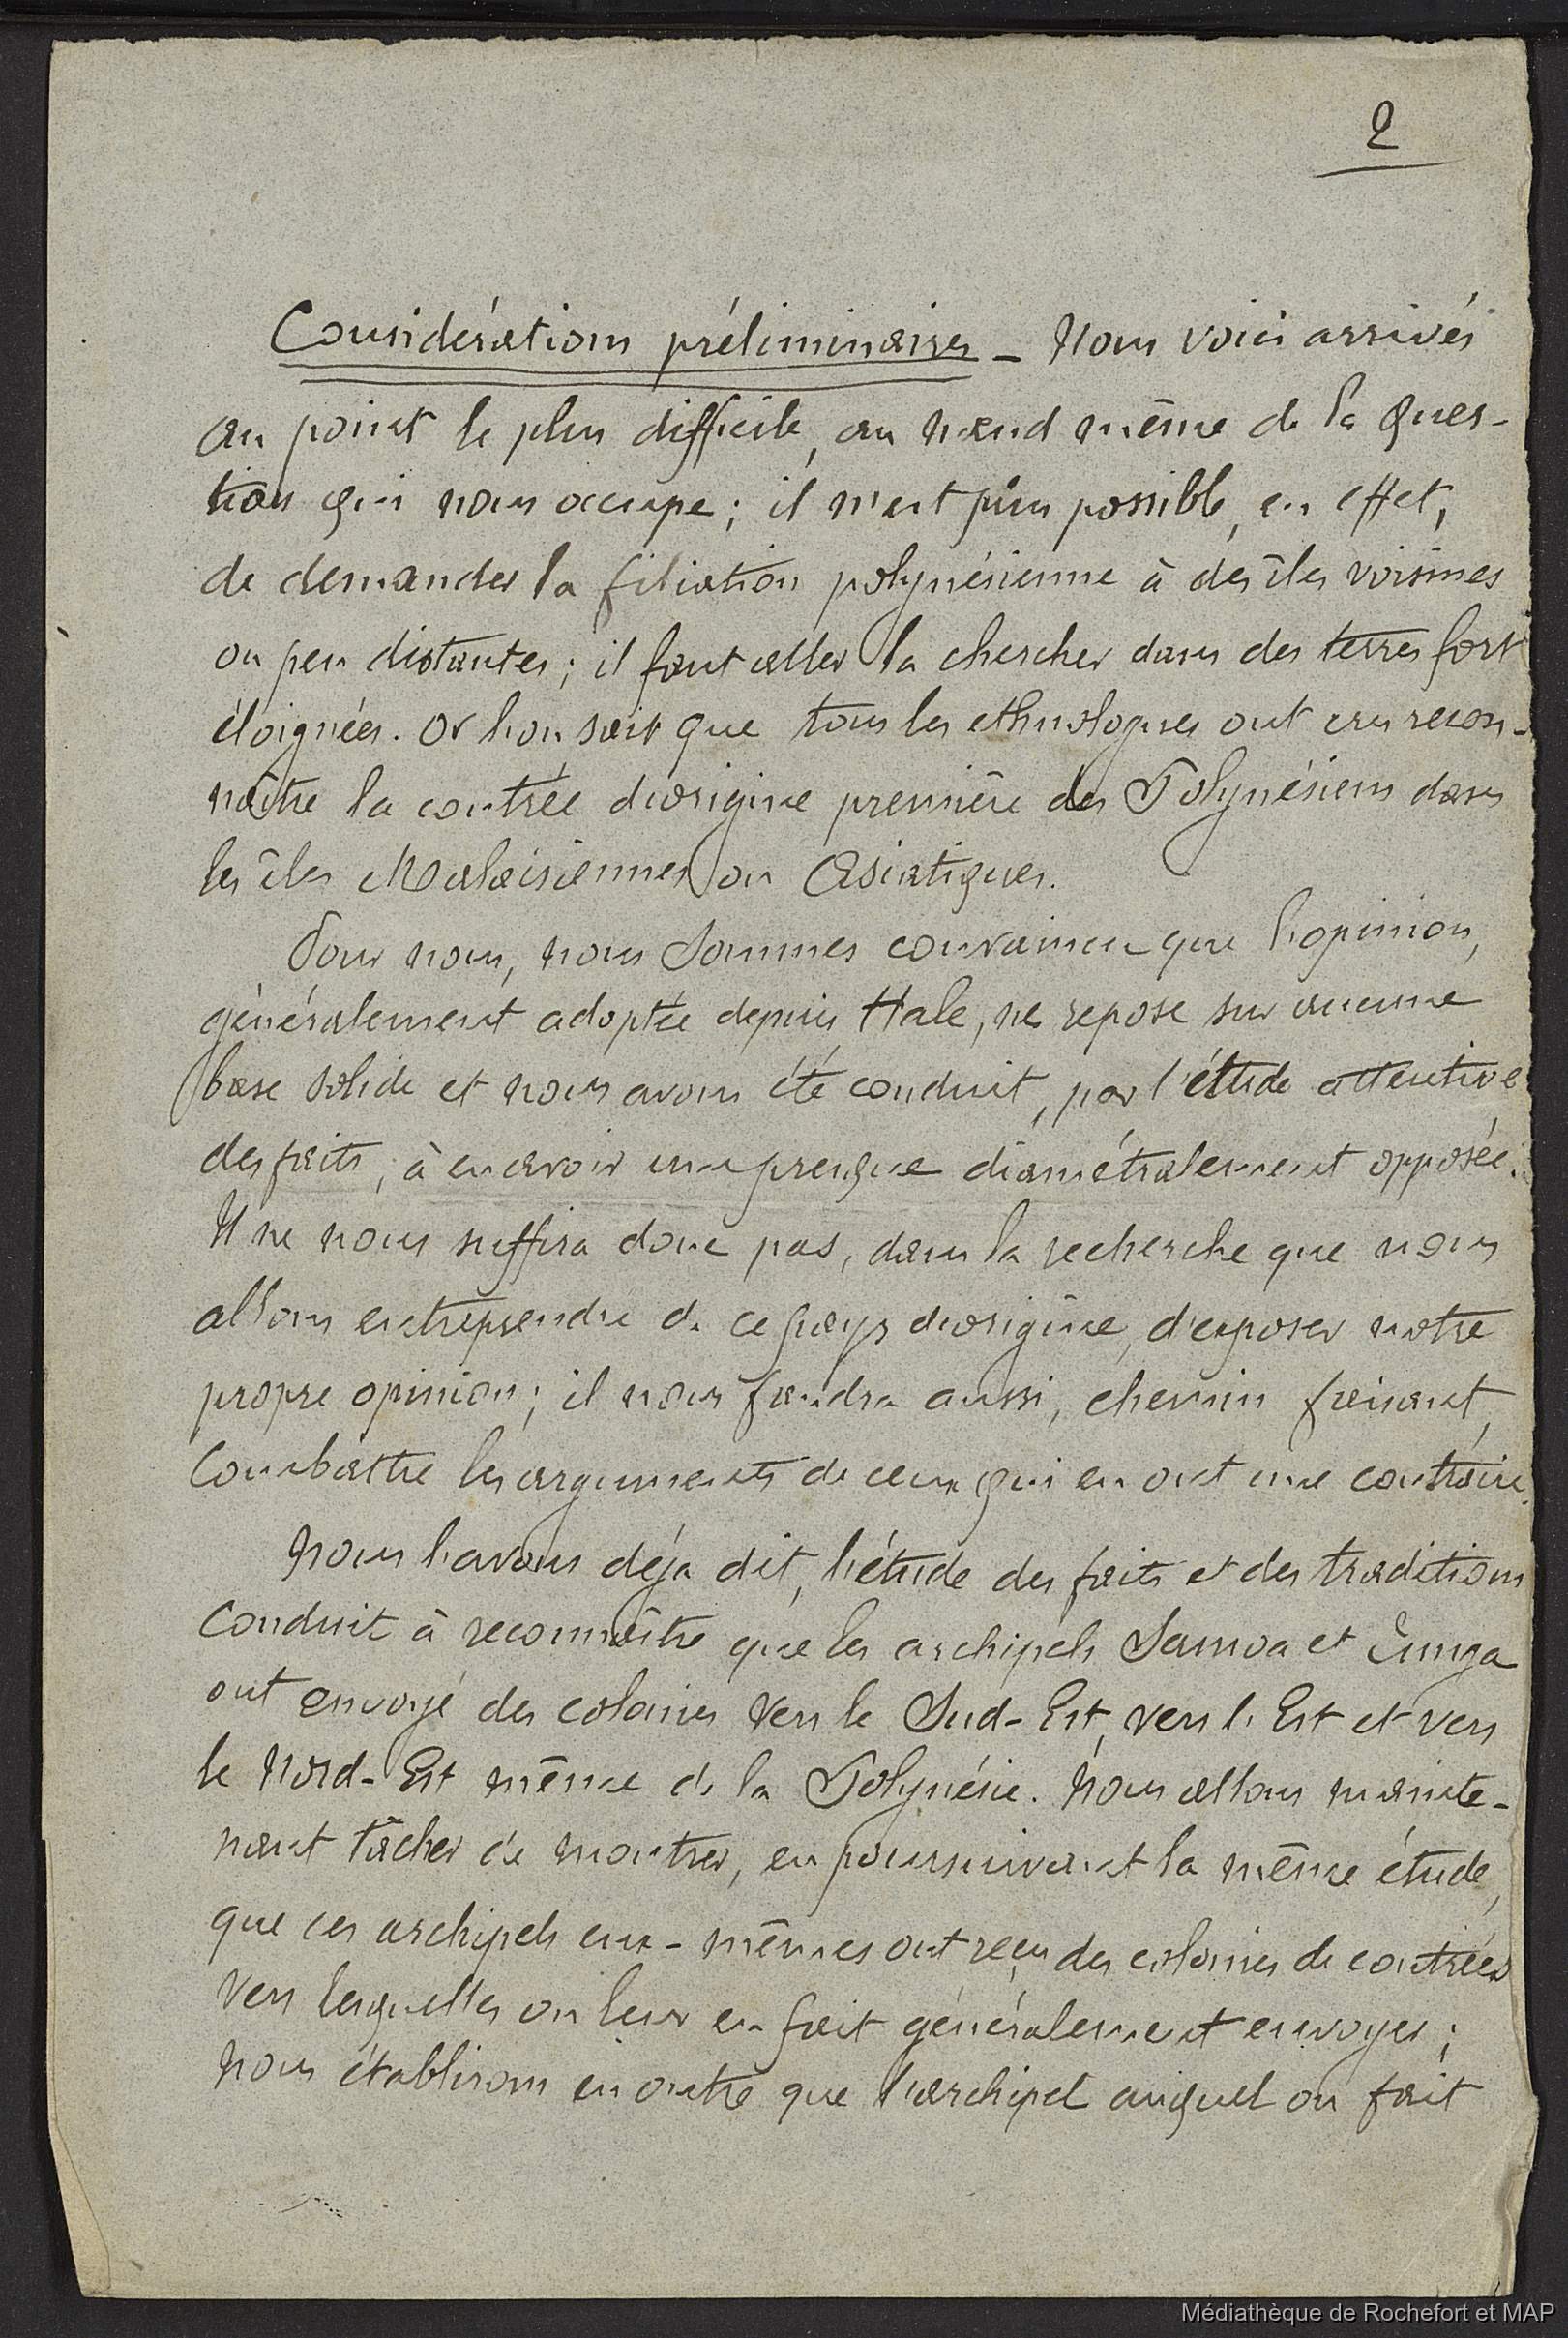 2
Considérations préliminaires - Nous voici arrivés
au point le plus difficile, au nœud même de la ques-
tion qui nous occupe ; il n'est plus possible, en effet,
de demander la filiation polynésienne à des îles voisines
ou peu distantes ; il faut aller la chercher dans des terres fort
éloignées. Or l'on sait que tous les ethnologues ont cru recon-
naître la contrée d'origine première des Polynésiens dans
les îles Malaisiennes ou Asiatiques.
Pour nous, nous sommes convaincu que l'opinion,
généralement adoptée depuis Hale, ne repose sur aucune
base solide et nous avons été conduit, par l'étude attentive
des faits, à en avoir une presque diamétralement opposée.
Il ne nous suffira donc pas, dans la recherche que nous
allons entreprendre de ce pays d'origine, d'exposer notre
propre opinion ; il nous faudra aussi, chemin faisant,
Combattre les arguments de ceux qui en ont une contraire.
Nous l'avons déja dit, l'étude des faits et des traditions
Conduit à reconnaître que les archipels Samoa et Tunga
ont envoyé des colonies vers le Sud-Est, vers l'Est et vers
le Nord-Est même de la Polynésie. Nous allons mainte-
nant tâcher de montrer, en poursuivant la même étude,
que ces archipels eux-mêmes ont reçu des colonies de contrées
vers lesquelles on leur en fait généralement envoyer ;
Nous établirons en outre que l'archipel auquel on fait
Médiathèque de Rochefort et MAP